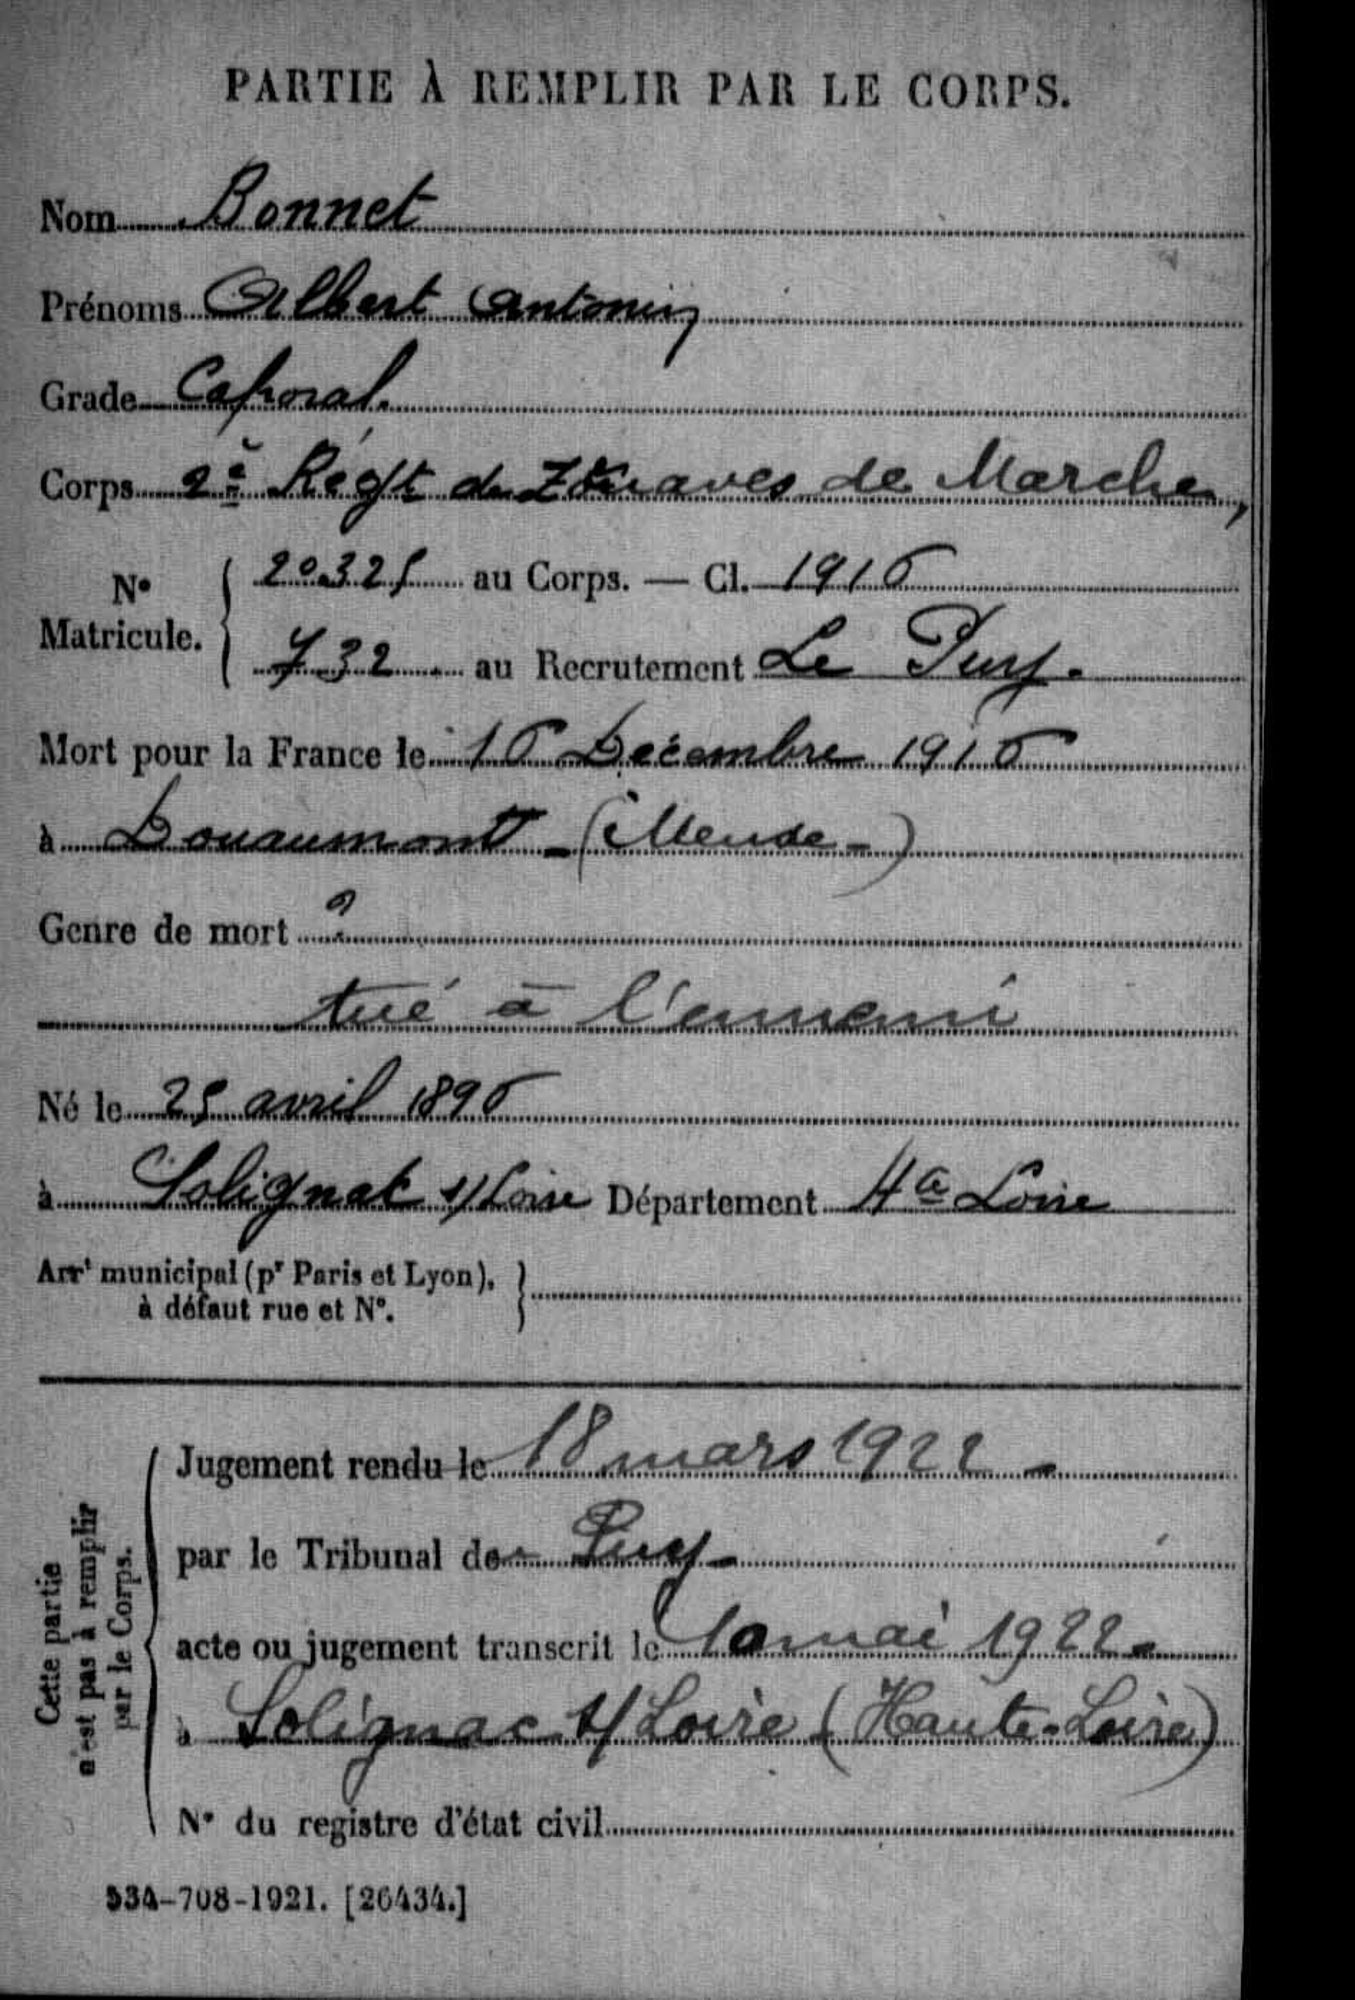 PARTIE À REMPLIR PAR LE CORPS.
Nom Bonnet
Prénoms Albert Antonin
Grade Caporal.
Corps 2e Régt de Zouaves de Marche,
No Matricule. { 20.325 au Corps. — Cl. 1916
732 au Recrutement Le Puy.
Mort pour la France le 16 Décembre 1916
à Douaumont - (Meuse-)
Genre de mort ?
tué à l'ennemi
Né le 25 avril 1896
à Solignac s/Loire Département Hte Loire
Arrt municipal (pr Paris et Lyon), }
à défaut rue et N°.
Cette partie
n'est pas à remplir
par le Corps.
Jugement rendu le 18 mars 1922 -
par le Tribunal de Puy -
acte ou jugement transcrit le 10 mai 1922 -
à Solignac s/Loire (Haute-Loire)
N° du registre d'état civil
534-708-1921. [26434.]